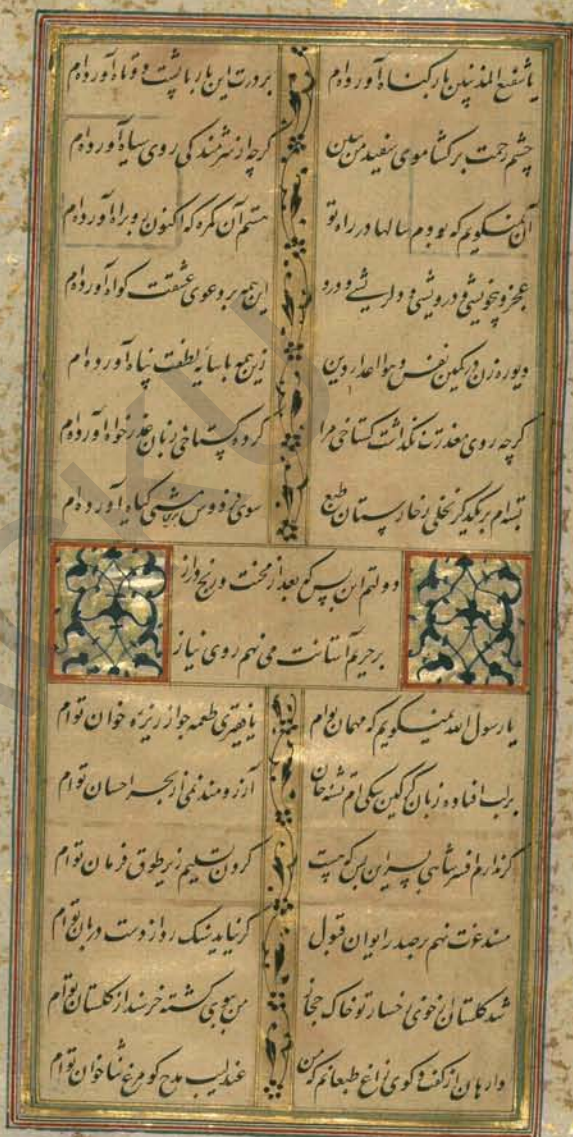 یا شفیع المذنبین بار کناه آورده‌ام بر درت این بار با پشت دو تاه آورده‌ام
چشم رحمت بر کشا موی سفید من ببین کرچه از شرمندکی روی سیاه آورده‌ام
آن نمیکویم که بودم سالها در راه تو هستم آن کمره که اکنون رو براه آورده‌ام
عجز و بیخویشی و درویشی و دلریشی و درد این همه بر دعوی عشقت کواه آورده‌ام
دیو رهزن در کمین نفس و هوا اعدای دین زین همه با سایه لطفت پناه آورده‌ام
کرچه روی معذرت نکذاشت کستاخی مرا کرده کستاخی زبان عذر خواه آورده‌ام
بسته‌ام بر یکدیکر نخلی ز خارستان طبع سوی فردوس برین مشتی کیاه آورده‌ام
دولتم این بس که بعد از محنت و رنج دراز
بر حریم آستانت می نهم روی نیاز
یا رسول الله نمیکویم که مهمان توام یا فقیری طعمه جو از ریزه خوان توام
بر لب افتاده زبان کرکین سکی‌ام تشنه جان آرزومند نمی از بحر احسان توام
کر ندارم افسر شاهی بسر این بس که هست کردن تسلیم زیر طوق فرمان توام
مسند عزت نهم بر صدر ایوان قبول کر نیاید سنک رد از دست دربان توام
شد کلستان از خوی رخسار تو خاک حجاز من ببوی کشته خرسند از کلستان توام
وارهان از کفت و کوی زاغ طبعانم که من عندلیب مدح کو مرغ ثنا خوان توام